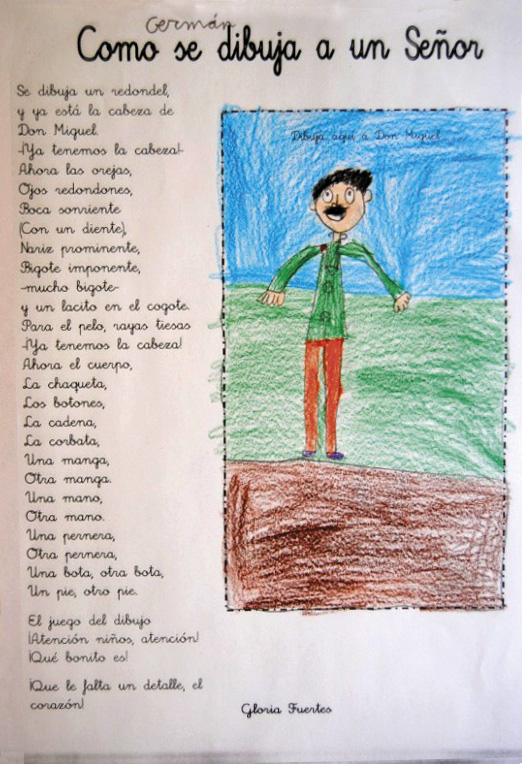 Germán
Como se dibuja a un Señor
Se dibuja un redondel,
y ya está la cabeza de
Don Miguel.
-¡Ya tenemos la cabeza!-
Ahora las orejas,
Ojos redondones,
Boca sonriente
(Con un diente),
Nariz prominente,
Bigote imponente,
-mucho bigote-
y un lacito en el cogote.
Para el pelo, rayas tiesas
-¡Ya tenemos la cabeza!
Ahora el cuerpo,
La chaqueta,
Los botones,
La cadena,
La corbata,
Una manga,
Otra manga.
Una mano,
Otra mano.
Una pernera,
Otra pernera,
Una bota, otra bota,
Un pie, otro pie.
El juego del dibujo
¡Atención niños, atención!
¡Qué bonito es!
¡Que le falta un detalle, el
corazón!
Dibuja aquí a Don Miguel
Gloria Fuertes